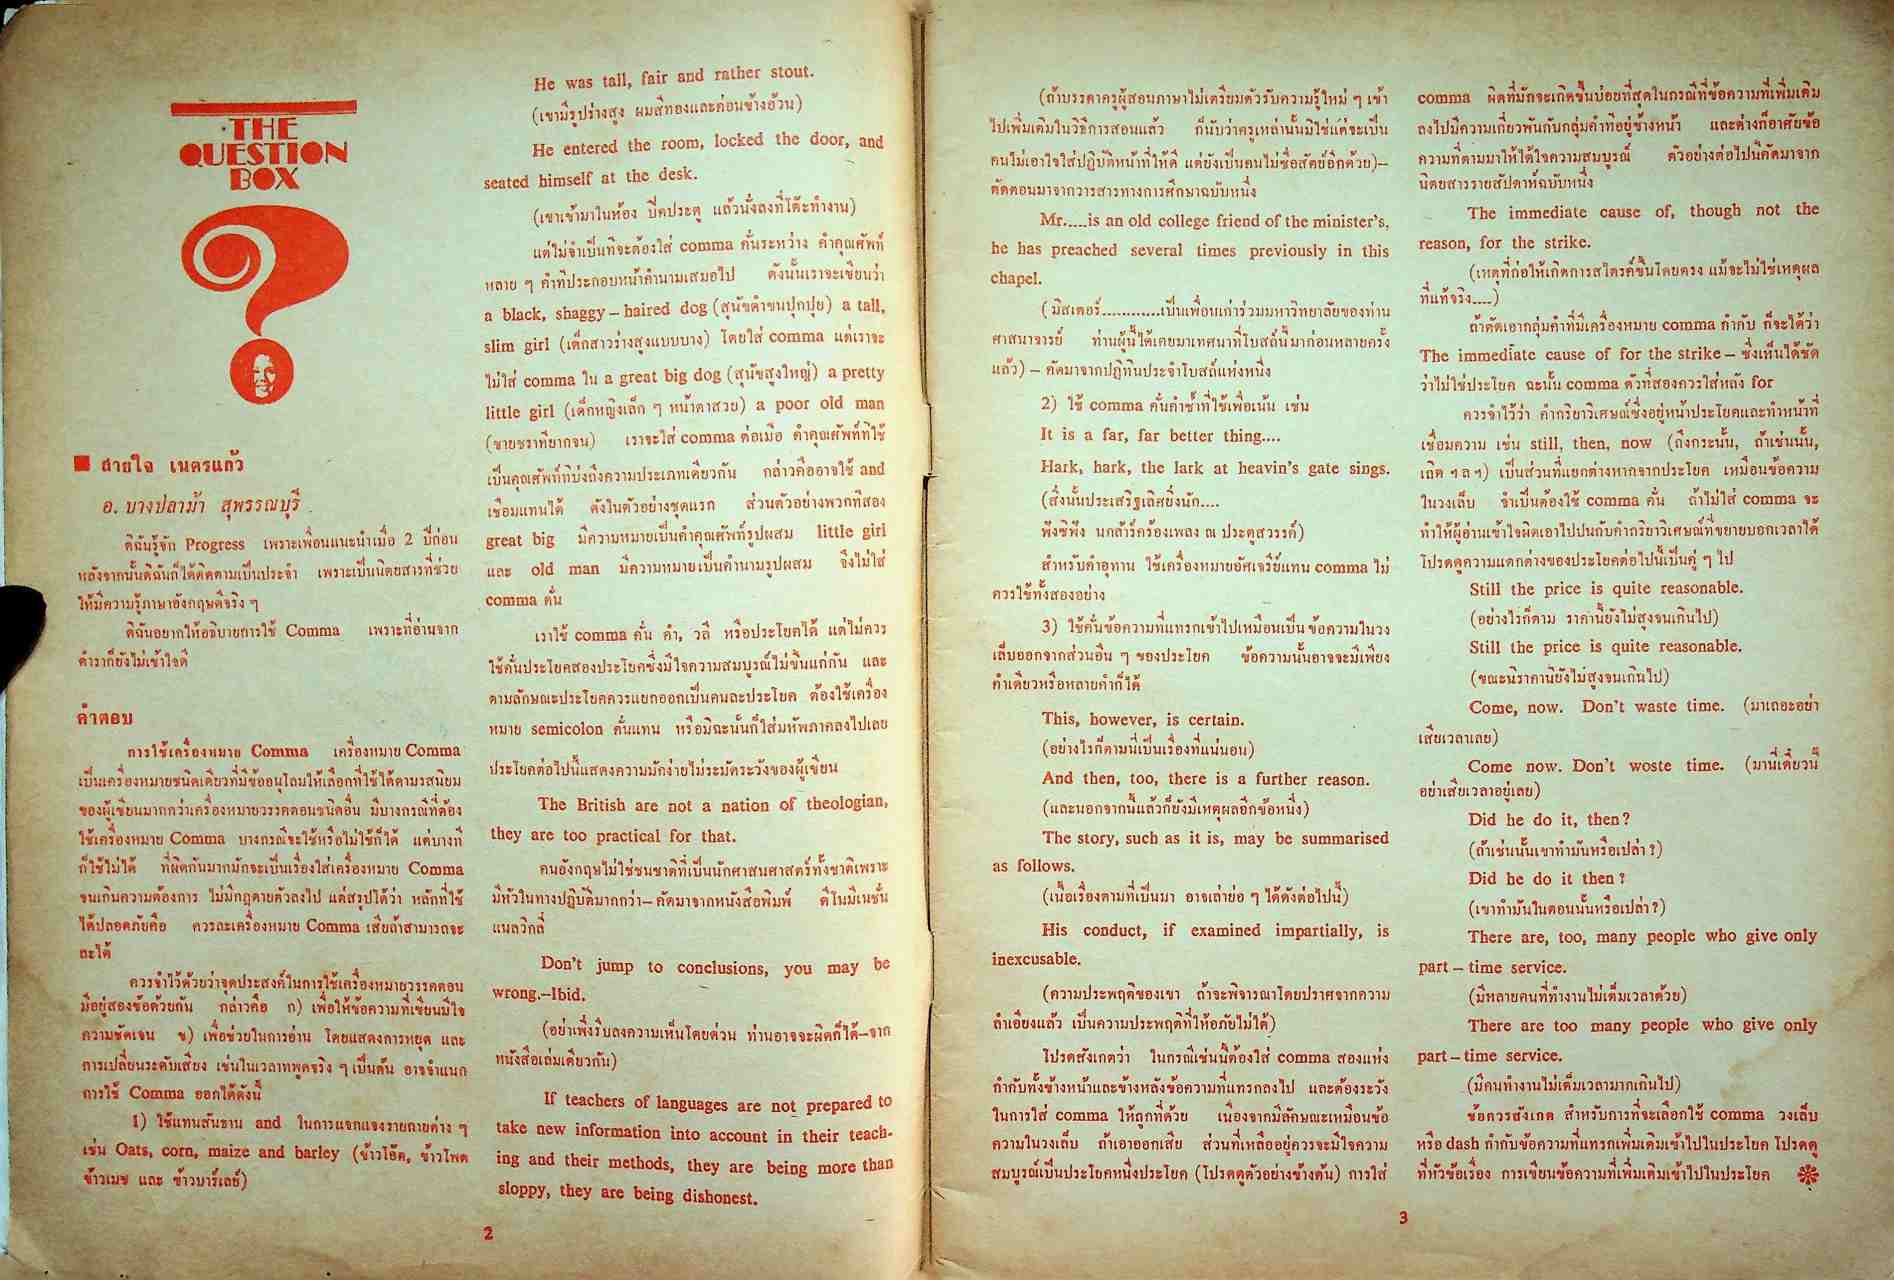 THE
QUESTION
BOX
สายใจ เนตรแก้ว
อ. บางปลาม้า สุพรรณบุรี
ดิฉันรู้จัก Progress เพราะเพื่อนแนะนำเมื่อ 2 ปีก่อน
หลังจากนั้นดิฉันก็ได้ติดตามเป็นประจำ เพราะเป็นนิตยสารที่ช่วย
ให้มีความรู้ภาษาอังกฤษดีจริง ๆ
ดิฉันอยากให้อธิบายการใช้ Comma เพราะที่อ่านจาก
ตำราก็ยังไม่เข้าใจดี
คำตอบ
การใช้เครื่องหมาย Comma เครื่องหมาย Comma
เป็นเครื่องหมายชนิดเดียวที่มีข้ออนุโลมให้เลือกที่ใช้ได้ตามรสนิยม
ของผู้เขียนมากกว่าเครื่องหมายวรรคตอนชนิดอื่น มีบางกรณีที่ต้อง
ใช้เครื่องหมาย Comma บางกรณีจะใช้หรือไม่ใช้ก็ได้ แต่บางที
ก็ใช้ไม่ได้ ที่ผิดกันมากมักจะเป็นเรื่องใส่เครื่องหมาย Comma
จนเกินความต้องการ ไม่มีกฎตายตัวลงไป แต่สรุปได้ว่า หลักที่ใช้
ได้ปลอดภัยคือ ควรละเครื่องหมาย Comma เสียถ้าสามารถจะ
ละได้
ควรจำไว้ด้วยว่าจุดประสงค์ในการใช้เครื่องหมายวรรคตอน
มีอยู่สองข้อด้วยกัน กล่าวคือ ก) เพื่อให้ข้อความที่เขียนมีใจ
ความชัดเจน ข) เพื่อช่วยในการอ่าน โดยแสดงการหยุด และ
การเปลี่ยนระดับเสียง เช่นในเวลาทพูดจริง ๆ เป็นต้น อาจจำแนก
การใช้ Comma ออกได้ดังนี้
1) ใช้แทนสันธาน and ในการแจกแจงรายการต่าง ๆ
เช่น Oats, corn, maize and barley (ข้าวโอ๊ต, ข้าวโพด
ข้าวเมซ และ ข้าวบาร์เลย์)
He was tall, fair and rather stout.
(เขามีรูปร่างสูง ผมสีทองและค่อนข้างอ้วน)
He entered the room, locked the door, and
seated himself at the desk.
(เขาเข้ามาในห้อง ปิดประตู แล้วนั่งลงที่โต๊ะทำงาน)
แต่ไม่จำเป็นที่จะต้องใส่ comma คั่นระหว่าง คำคุณศัพท์
หลาย ๆ คำที่ประกอบหน้าคำนามเสมอไป ดังนั้นเราจะเขียนว่า
a black, shaggy – haired dog (สุนัขดำขนปุกปุย) a tall,
slim girl (เด็กสาวร่างสูงแบบบาง) โดยใส่ comma แต่เราจะ
ไม่ใส่ comma ใน a great big dog (สุนัขสูงใหญ่) a pretty
little girl (เด็กหญิงเล็ก ๆ หน้าตาสวย) a poor old man
(ชายชราที่ยากจน) เราจะใส่ comma ต่อเมื่อ คำคุณศัพท์ที่ใช้
เป็นคุณศัพท์ที่บ่งถึงความประเภทเดียวกัน กล่าวคืออาจใช้ and
เชื่อมแทนได้ ดังในตัวอย่างชุดแรก ส่วนตัวอย่างพวกที่สอง
great big มีความหมายเป็นคำคุณศัพท์รูปผสม little girl
และ old man มีความหมายเป็นคำนามรูปผสม จึงไม่ใส่
comma คั่น
เราใช้ comma คั่น คำ, วลี หรือประโยคได้ แต่ไม่ควร
ใช้คั่นประโยคสองประโยคซึ่งมีใจความสมบูรณ์ไม่ขึ้นแก่กัน และ
ตามลักษณะประโยคควรแยกออกเป็นคนละประโยค ต้องใช้เครื่อง
หมาย semicolon คั่นแทน หรือมิฉะนั้นก็ใส่มหัพภาคลงไปเลย
ประโยคต่อไปนี้แสดงความมักง่ายไม่ระมัดระวังของผู้เขียน
The British are not a nation of theologian,
they are too practical for that.
คนอังกฤษไม่ใช่ชนชาติที่เป็นนักศาสนศาสตร์ทั้งชาติเพราะ
มีหัวในทางปฏิบัติมากกว่า– คัดมาจากหนังสือพิมพ์ ดีโนมิเนชั่น
แนลวีกลี่
Don't jump to conclusions, you may be
wrong.–Ibid.
(อย่าเพิ่งรีบลงความเห็นโดยด่วน ท่านอาจจะผิดก็ได้–จาก
หนังสือเล่มเดียวกัน)
If teachers of languages are not prepared to
take new information into account in their teach-
ing and their methods, they are being more than
sloppy, they are being dishonest.
2
(ถ้าบรรดาครูผู้สอนภาษาไม่เตรียมตัวรับความรู้ใหม่ ๆ เข้า
ไปเพิ่มเติมในวิธีการสอนแล้ว ก็นับว่าครูเหล่านั้นมิใช่แต่จะเป็น
คนไม่เอาใจใส่ปฏิบัติหน้าที่ให้ดี แต่ยังเป็นคนไม่ซื่อสัตย์อีกด้วย)–
ตัดตอนมาจากวารสารทางการศึกษาฉบับหนึ่ง
Mr.....is an old college friend of the minister's,
he has preached several times previously in this
chapel.
(มิสเตอร์............เป็นเพื่อนเก่าร่วมมหาวิทยาลัยของท่าน
ศาสนาจารย์ ท่านผู้นี้ได้เคยมาเทศนาที่โบสถ์นี้มาก่อนหลายครั้ง
แล้ว) – คัดมาจากปฏิทินประจำโบสถ์แห่งหนึ่ง
2) ใช้ comma คั่นคำซ้ำที่ใช้เพื่อเน้น เช่น
It is a far, far better thing....
Hark, hark, the lark at heavin's gate sings.
(สิ่งนั้นประเสริฐเลิศยิ่งนัก....
ฟังซิฟัง นกล้าร์คร้องเพลง ณ ประตูสวรรค์)
สำหรับคำอุทาน ใช้เครื่องหมายอัศเจรีย์แทน comma ไม่
ควรใช้ทั้งสองอย่าง
3) ใช้คั่นข้อความที่แทรกเข้าไปเหมือนเป็น ข้อความในวง
เล็บออกจากส่วนอื่น ๆ ของประโยค ข้อความนั้นอาจจะมีเพียง
คำเดียวหรือหลายคำก็ได้
This, however, is certain.
(อย่างไรก็ตามนี่เป็นเรื่องที่แน่นอน)
And then, too, there is a further reason.
(และนอกจากนี้แล้วก็ยังมีเหตุผลอีกข้อหนึ่ง)
The story, such as it is, may be summarised
as follows.
(เนื้อเรื่องตามที่เป็นมา อาจเล่าย่อ ๆ ได้ดังต่อไปนี้)
His conduct, if examined impartially, is
inexcusable.
(ความประพฤติของเขา ถ้าจะพิจารณาโดยปราศจากความ
ลำเอียงแล้ว เป็นความประพฤติที่ให้อภัยไม่ได้)
โปรดสังเกตว่า ในกรณีเช่นนี้ต้องใส่ comma สองแห่ง
กำกับทั้งข้างหน้าและข้างหลังข้อความที่แทรกลงไป และต้องระวัง
ในการใส่ comma ให้ถูกที่ด้วย เนื่องจากมีลักษณะเหมือนข้อ
ความในวงเล็บ ถ้าเอาออกเสีย ส่วนที่เหลืออยู่ควรจะมีใจความ
สมบูรณ์เป็นประโยคหนึ่งประโยค (โปรดดูตัวอย่างข้างต้น) การใส่
comma ผิดที่มักจะเกิดขึ้นบ่อยที่สุดในกรณีที่ข้อความที่เพิ่มเติม
ลงไปมีความเกี่ยวพันกับกลุ่มคำที่อยู่ข้างหน้า และต่างก็อาศัยข้อ
ความที่ตามมาให้ได้ใจความสมบูรณ์ ตัวอย่างต่อไปนี้คัดมาจาก
นิตยสารรายสัปดาห์ฉบับหนึ่ง
The immediate cause of, though not the
reason, for the strike.
(เหตุที่ก่อให้เกิดการสไตรค์ขึ้นโดยตรง แม้จะไม่ใช่เหตุผล
ที่แท้จริง....)
ถ้าตัดเอากลุ่มคำที่มีเครื่องหมาย comma กำกับ ก็จะได้ว่า
The immediate cause of for the strike – ซึ่งเห็นได้ชัด
ว่าไม่ใช่ประโยค ฉะนั้น comma ตัวที่สองควรใส่หลัง for
ควรจำไว้ว่า คำกริยาวิเศษณ์ซึ่งอยู่หน้าประโยคและทำหน้าที่
เชื่อมความ เช่น still, then, now (ถึงกระนั้น, ถ้าเช่นนั้น,
เถิด ฯลฯ) เป็นส่วนที่แยกต่างหากจากประโยค เหมือนข้อความ
ในวงเล็บ จำเป็นต้องใช้ comma คั่น ถ้าไม่ใส่ comma จะ
ทำให้ผู้อ่านเข้าใจผิดเอาไปปนกับคำกริยาวิเศษณ์ที่ขยายบอกเวลาได้
โปรดดูความแตกต่างของประโยคต่อไปนี้เป็นคู่ ๆ ไป
Still the price is quite reasonable.
(อย่างไรก็ตาม ราคานี้ยังไม่สูงจนเกินไป)
Still the price is quite reasonable.
(ขณะนี้ราคานี้ยังไม่สูงจนเกินไป)
Come, now. Don't waste time. (มาเถอะอย่า
เสียเวลาเลย)
Come now. Don't woste time. (มานี่เดี๋ยวนี้
อย่าเสียเวลาอยู่เลย)
Did he do it, then?
(ถ้าเช่นนั้นเขาทำมันหรือเปล่า?)
Did he do it then?
(เขาทำมันในตอนนั้นหรือเปล่า?)
There are, too, many people who give only
part – time service.
(มีหลายคนที่ทำงานไม่เต็มเวลาด้วย)
There are too many people who give only
part – time service.
(มีคนทำงานไม่เต็มเวลามากเกินไป)
ข้อควรสังเกต สำหรับการที่จะเลือกใช้ comma วงเล็บ
หรือ dash กำกับข้อความที่แทรกเพิ่มเติมเข้าไปในประโยค โปรดดู
ที่หัวข้อเรื่อง การเขียนข้อความที่เพิ่มเติมเข้าไปในประโยค
3